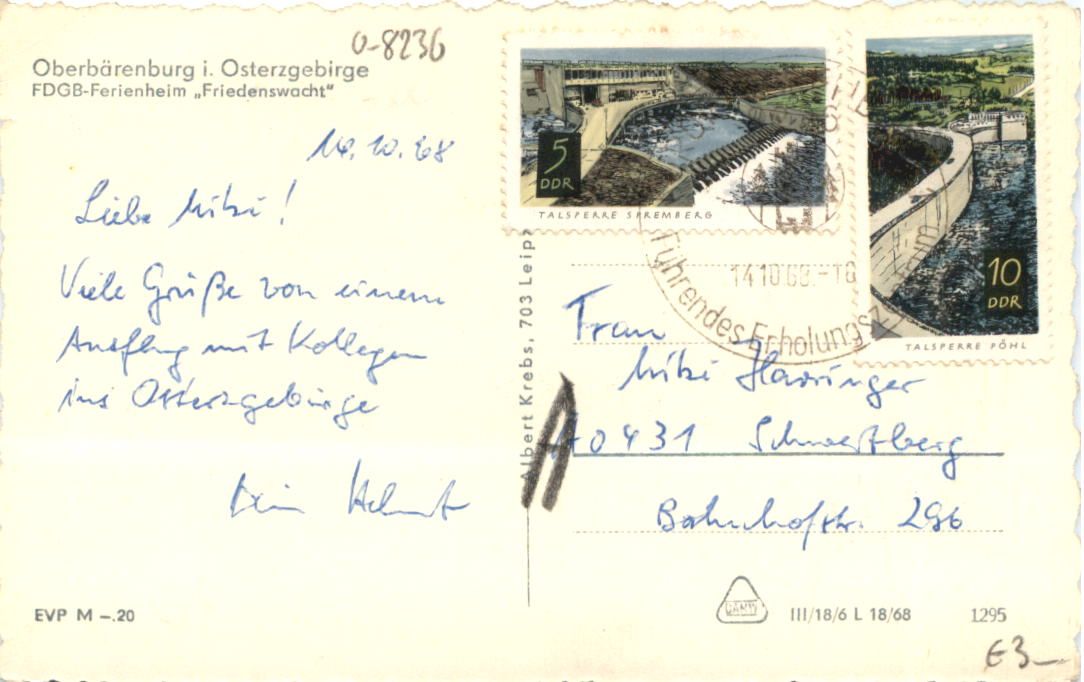 0-8236
Oberbärenburg i. Osterzgebirge
FDGB-Ferienheim „Friedenswacht“
14.10.68
Liebe Mitzi!
Viele Grüße von einem
Ausflug mit Kollegen
ins Osterzgebirge
Dein Helmut
EVP M –.20
Albert Krebs, 703 Leipz
5
DDR
TALSPERRE SPREMBERG
10
DDR
TALSPERRE PÖHL
14.10.68.-18
Führendes Erholungsz
Frau
Mitzi Haringer
A 0431 Schwertberg
Bahnhofstr. 296
A
III/18/6 L 18/68
1295
€3–